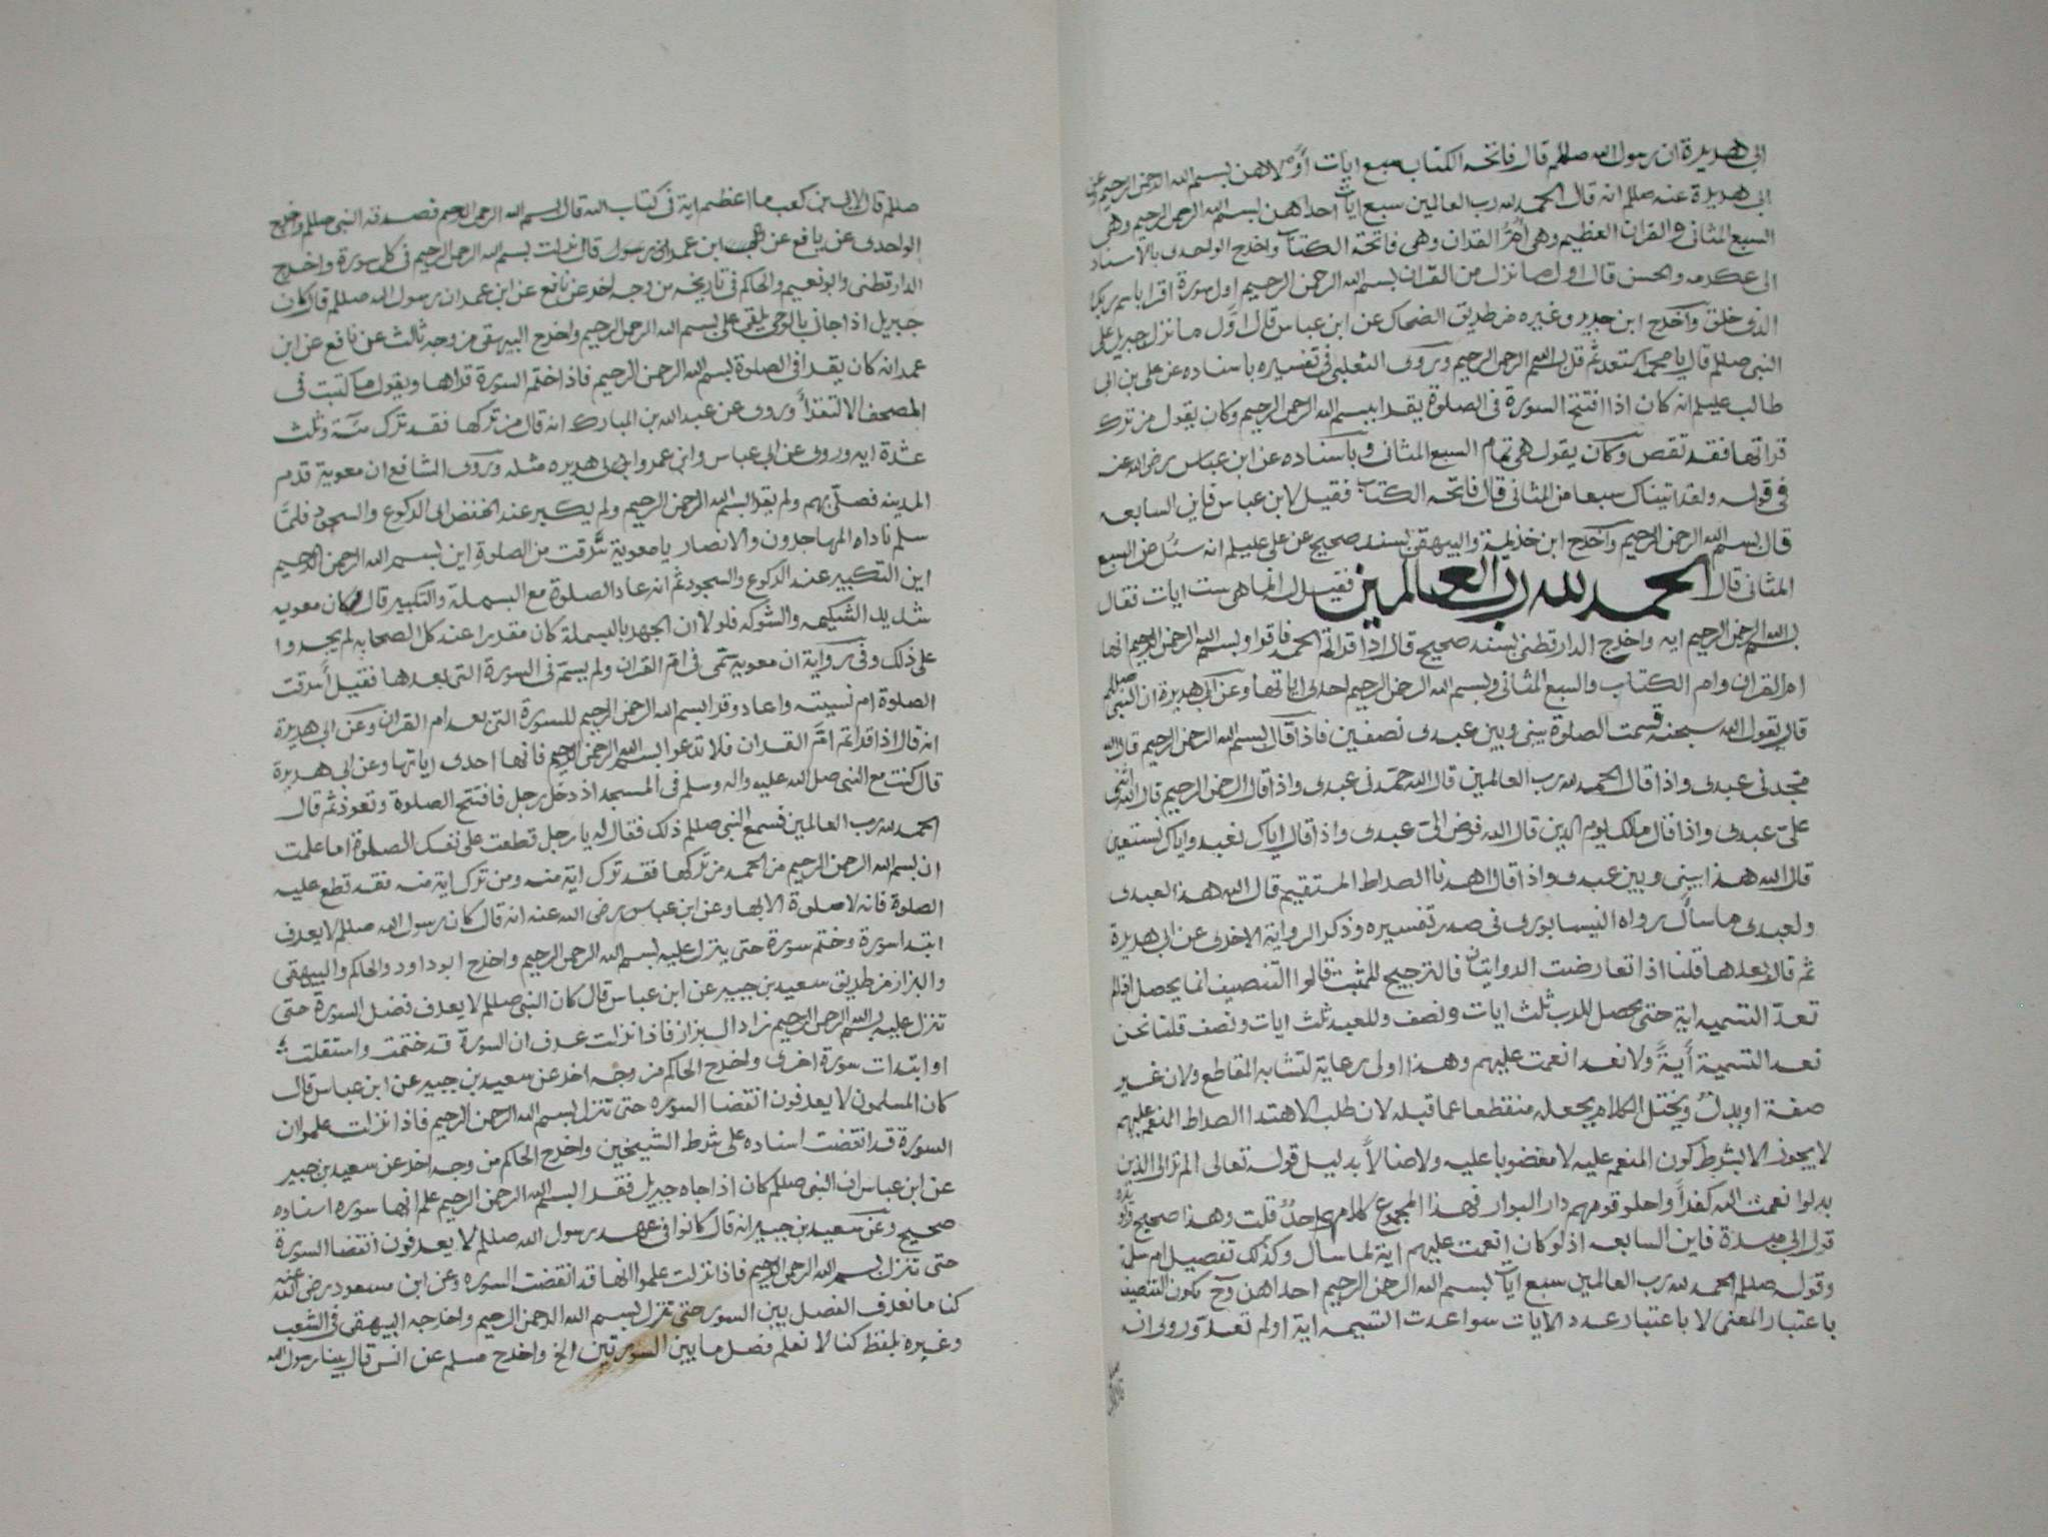 ابى هريرة ان رسول الله صللم قال فاتحه الكتاب سبع ايات أوّلاهن بسم الله الرحمن الرحيم وعن
ابى هريرة عنه صللم انه قال الحمد لله رب العالمين سبع ايات احداهن بسم الله الرحمن الرحيم وهى
السبع المثانى والقران العظيم وهى أمُّ القران وهى فاتحة الكتاب واخرج الواحدى بالاسناد
الى عكرمه والحسن قال اول ما نزل من القران بسم الله الرحمن الرحيم اول سورة اقرا باسم ربك
الذى خلق وآخرج ابن جرير وغيره من طريق الضحاك عن ابن عباس قال اوّل ما نزل جبريل على
النبى صللم قال يا محمد استعذ ثم قل بسم الله الرحمن الرحيم وروى الثعلبى فى تفسيره باسناده عن على بن ابى
طالب عليلم انه كان اذا افتتح السورة فى الصلوة يقرا ببسم الله الرحمن الرحيم وكان يقول من ترك
قراتها فقد نقص وكان يقول هى تمام السبع المثانى وباسناده عن ابن عباس رضى الله عنه
فى قوله ولقد اتيناك سبعا من المثانى قال فاتحه الكتاب فقيل لابن عباس فاين السابعه
قال بسم الله الرحمن الرحيم وآخرج ابن خزيمة والبيهقى بسند صحيح عن على عليلم انه سئل عن السبع
المثانى قال الحمد لله رب العالمين فقيل له انما هى ست ايات فقال
بسم الله الرحمن الرحيم ايه واخرج الدارقطنى بسند صحيح قال اذا قراتم الحمد فاقراو بسم الله الرحمن الرحيم انها
ام القران وام الكتاب والسبع المثانى وبسم الله الرحمن الرحيم احدى اياتها وعن ابى هريرة ان النبى صللم
قال يقول الله سبحنه قسمت الصلوة بينى وبين عبدى نصفين فاذا قال بسم الله الرحمن الرحيم قال الله
مجدنى عبدى واذا قال الحمد لله رب العالمين قال الله حمدنى عبدى واذا قال الرحمن الرحيم قال الله اثنى
علىّ عبدى واذا قال مالك يوم الدين قال الله فوض الىّ عبدى واذا قال اياك نعبد واياك نستعين
قال الله هذا بينى وبين عبدى واذا قال اهدنا الصراط المستقيم قال الله هذا لعبدى
ولعبدى ما سأل رواه النيسابورى فى صدر تفسيره وذكر الرواية الاخرى عن ابى هريرة
ثم قال بعدها قلنا اذا تعارضت الروايتان فالترجيح للمثبت قالوا التنصيف انما يحصل اذا لم
تعدّ التسميه اية حتى يحصل للرب ثلث ايات ونصف وللعبد ثلث ايات ونصف قلنا نحن
نعد التسمية أيةً ولا نعد انعمت عليهم وهذا اولى رعاية لتشابه المقاطع ولان غير
صفة او بدل ويختل الكلام بجعله منقطعا عما قبله لان طلب الاهتدا الصراط المنعم عليهم
لا يجوز الا بشرط كون المنعم عليه لا مغضوبا عليه ولا ضالاً بدليل قوله تعالى الم تر الى الذين
بدلوا نعمت الله كفراً واحلو قومهم دار البوار فهذا المجموع كلام واحد قلت وهذا صحيح
قول ابى هريرة فاين السابعه اذ لو كان انعمت عليهم اية لما سأل وكذلك تفصيل ام سلمة
وقول صللم الحمد لله رب العالمين سبع ايات بسم الله الرحمن الرحيم احداهن وح يكون التنصيف
باعتبار المعنى لا باعتبار عدد الايات سوا عدت التسميه اية او لم تعدّ وروى انه
صللم قال لابى بن كعب ما اعظم اية فى كتاب الله قال بسم الله الرحمن الرحيم فصدقه النبى صللم واخرج
الواحدى عن نافع عن ابن عمر قال نزلت بسم الله الرحمن الرحيم فى كل سورة واخرج
الدارقطنى وابو نعيم والحاكم فى تاريخه من وجه اخر عن نافع عن ابن عمر ان رسول الله صللم قال كان
جبريل اذا جانى بالوحى يلقى على بسم الله الرحمن الرحيم واخرج البيهقى من وجه ثالث عن نافع عن ابن
عمر انه كان يقرا فى الصلوة بسم الله الرحمن الرحيم فاذا ختم السورة قراها ويقول ما كتبت فى
المصحف الا لتقرأ وروى عن عبد الله بن المبارك انه قال من تركها فقد ترك مئة وثلث
عشرة ايه وروى عن ابى عباس وابى عمر وابى هريره مثله وروى الشافع ان معوية قدم
المدينه فصلّى بهم ولم يقرا بسم الله الرحمن الرحيم ولم يكبر عند الخفض الى الركوع والسجود فلمّا
سلم ناداه المهاجرون والانصار يا معوية سرقت من الصلوة اين بسم الله الرحمن الرحيم
اين التكبير عند الركوع والسجود ثم انه عاد الصلوة مع البسملة والتكبير قال كان معويه
شديد الشكيمه والشوكه فلولا ان الجهر بالبسملة كان مقدرا عند كل الصحابه لم يجدوا
على ذلك وفى رواية ان معوية سمّى فى ام القران ولم يسم فى السورة التى بعدها فقيل أسرقت
الصلوة ام نسيت واعاد وقرا بسم الله الرحمن الرحيم للسورة التى بعد ام القران وعن ابى هريرة
انه قال اذا قراتم امّ القران فلا تدعوا بسم الله الرحمن الرحيم فانها احدى اياتها وعن ابى هريرة
قال كنت مع النبى صلى الله عليه واله وسلم فى المسجد اذ دخل رجل فافتتح الصلوة وتعوذ ثم قال
الحمد لله رب العالمين فسمع النبى صللم ذلك فقال له يا رجل قطعت على نفسك الصلوة اما علمت
ان بسم الله الرحمن الرحيم من الحمد من تركها فقد ترك اية منه ومن ترك اية منه فقد قطع عليه
الصلوة فانه لا صلوة الا بها وعن ابن عباس رضى الله عنه انه قال كان رسول الله صللم لا يعرف
ابتدا سورة وختم سورة حتى ينزل عليه بسم الله الرحمن الرحيم واخرج ابو داود والحاكم والبيهقى
والبزاز من طريق سعيد بن جبير عن ابن عباس قال كان النبى صللم لا يعرف فضل السورة حتى
تنزل عليه بسم الله الرحمن الرحيم زاد البزاز فاذا نزلت عرف ان السورة قد ختمت واستقلت
او ابتدات سورة اخرى واخرج الحاكم من وجه اخر عن سعيد بن جبير عن ابن عباس قال
كان المسلمون لا يعرفون انقضا السوره حتى تنزل بسم الله الرحمن الرحيم فاذا نزلت علموا ان
السورة قد انقضت اسناده على شرط الشيخين واخرج الحاكم من وجه اخر عن سعيد بن جبير
عن ابن عباس ان النبى صللم كان اذا جاه جبريل فقرا بسم الله الرحمن الرحيم علم انها سوره اسناده
صحيح وعن سعيد بن جبير انه قال كانوا فى عهد رسول الله صللم لا يعرفون انقضا السورة
حتى تنزل بسم الله الرحمن الرحيم فاذا نزلت علموا انها قد انقضت السوره وعن ابن مسعود رضى الله عنه
كنا ما نعرف الفصل بين السور حتى تنزل بسم الله الرحمن الرحيم واخرجه البيهقى فى الشعب
وغيره بلفظ كنا لا نعلم فصل ما بين السورتين الخ واخرج مسلم عن انس قال بينا رسول الله